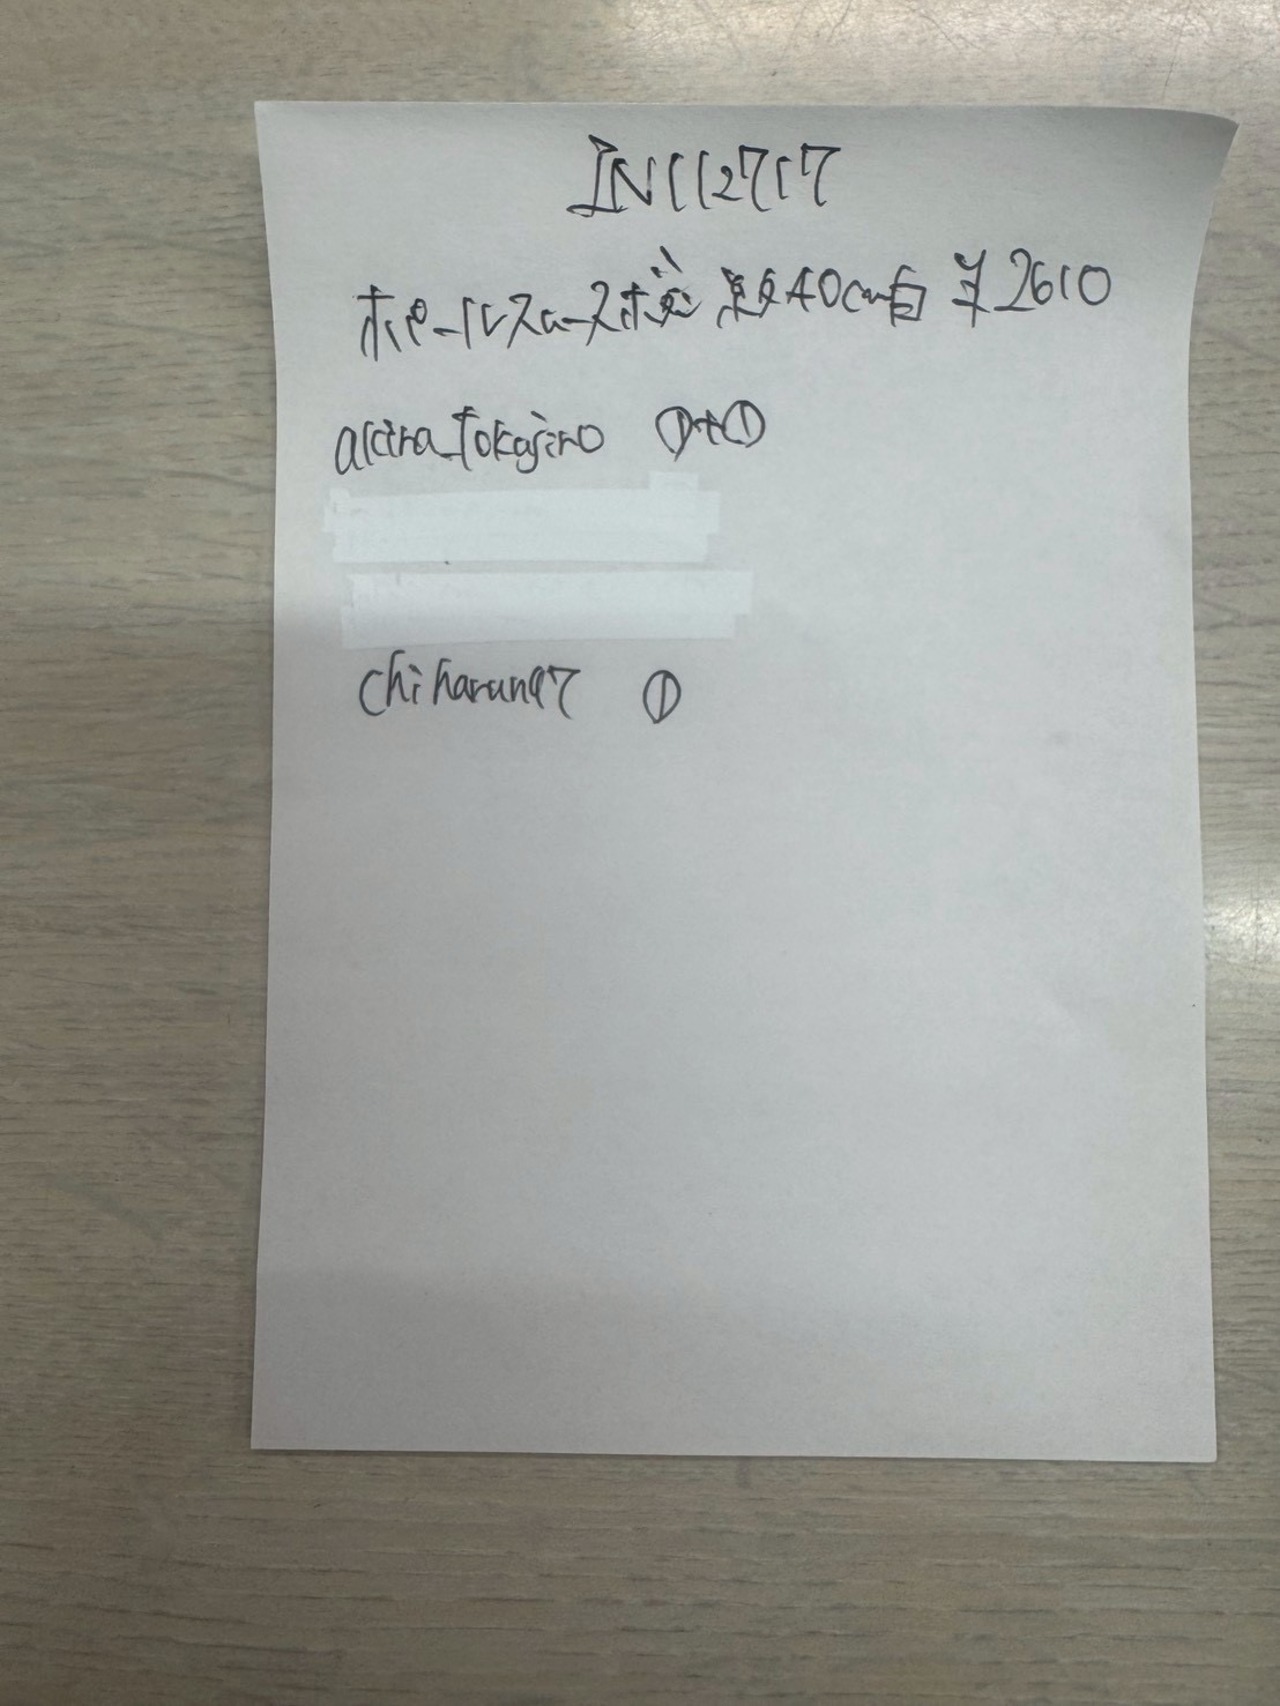 IN112717
ホイールスロースボ 40cm 白 ¥2610
akira_tokajiro ①+①
chiharun97 ①